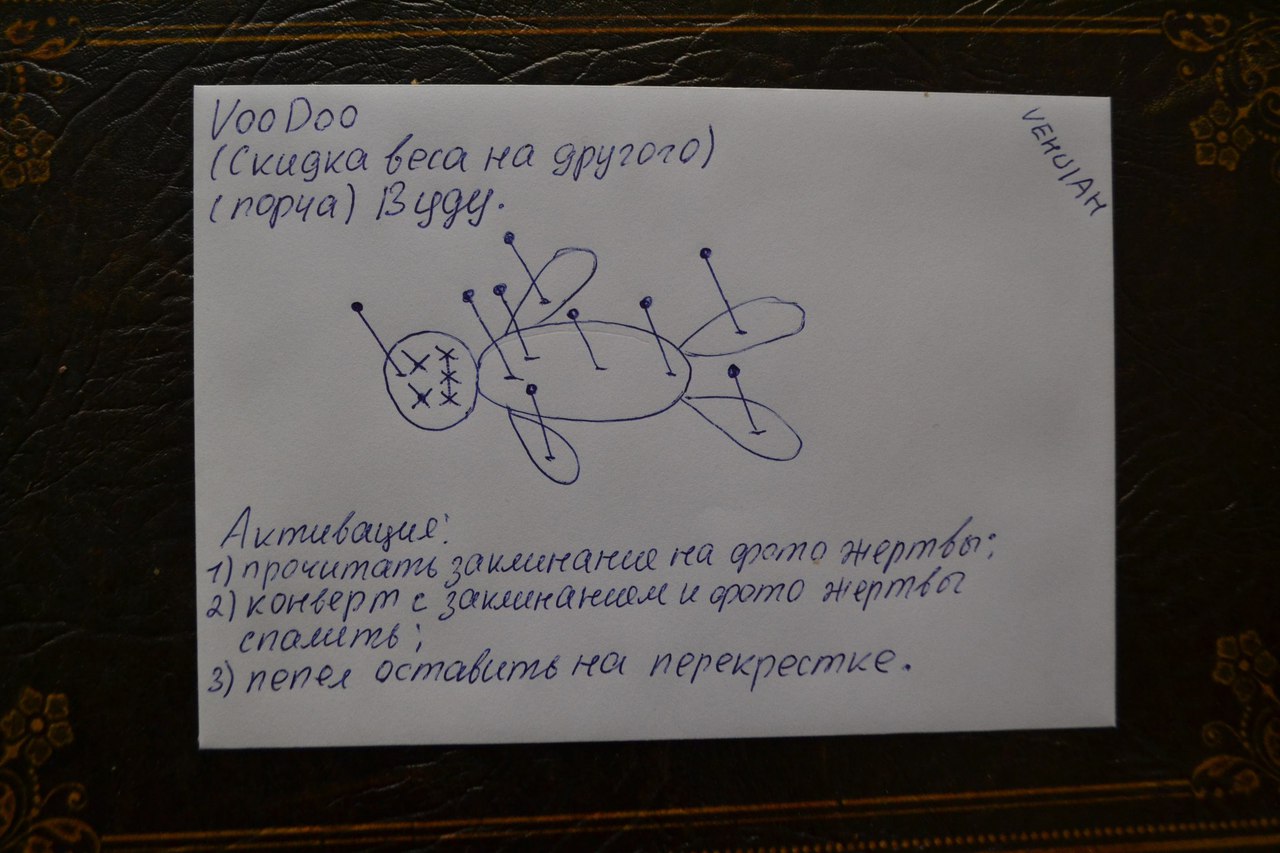 VooDoo
(Скидка веса на другого)
(порча) Вуду.
VEHUIAH
Активация:
1) прочитать заклинание на фото жертвы;
2) конверт с заклинанием и фото жертвы
спалить;
3) пепел оставить на перекрестке.